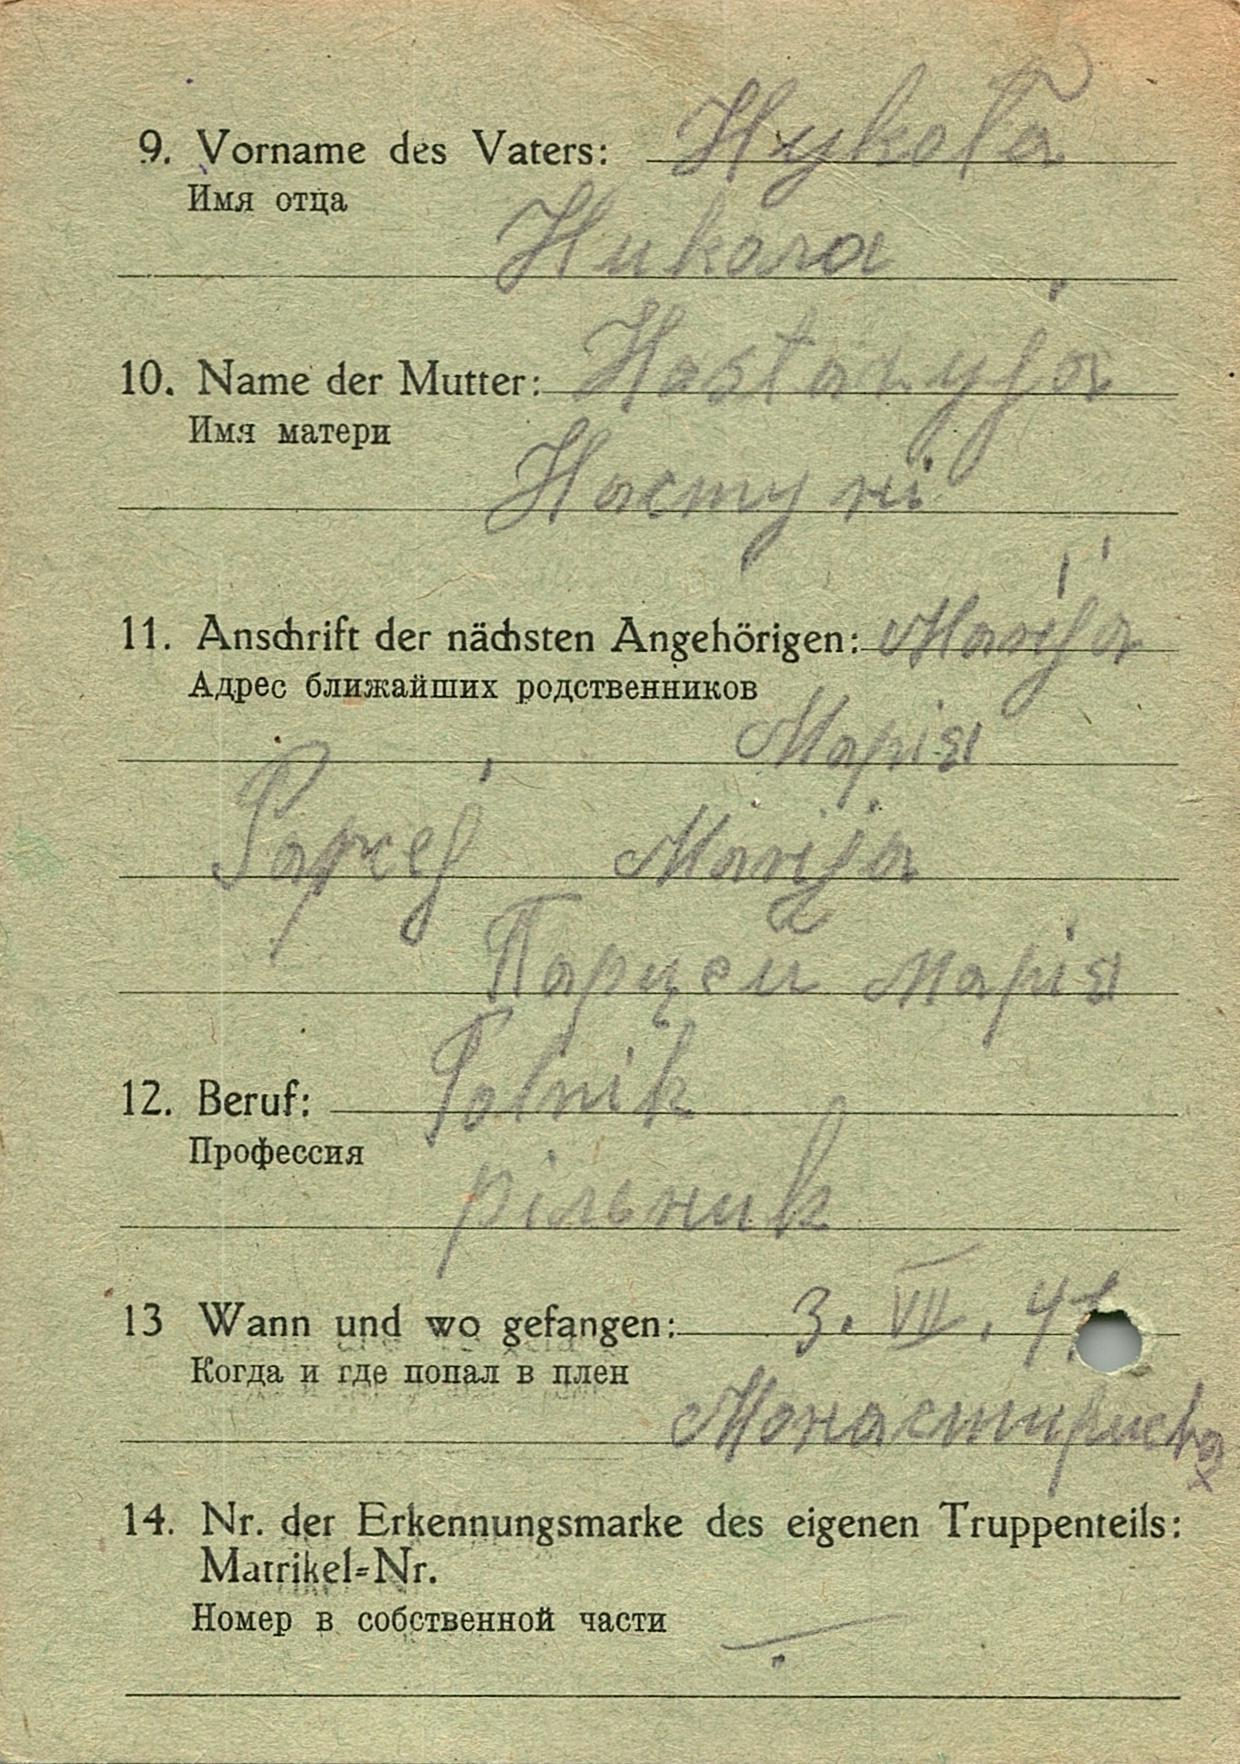 9. Vorname des Vaters: Nykoła
Имя отца
Никола
10. Name der Mutter: Nastazyja
Имя матери
Настуні
11. Anschrift der nächsten Angehörigen: Marija
Адрес ближайших родственников
Марія
Parcej Marija
Парцей Марія
12. Beruf: Rolnik
Профессия
рільник
13 Wann und wo gefangen: 3. VII. 41
Когда и где попал в плен
Монастириска
14. Nr. der Erkennungsmarke des eigenen Truppenteils:
Matrikel-Nr.
Номер в собственной части